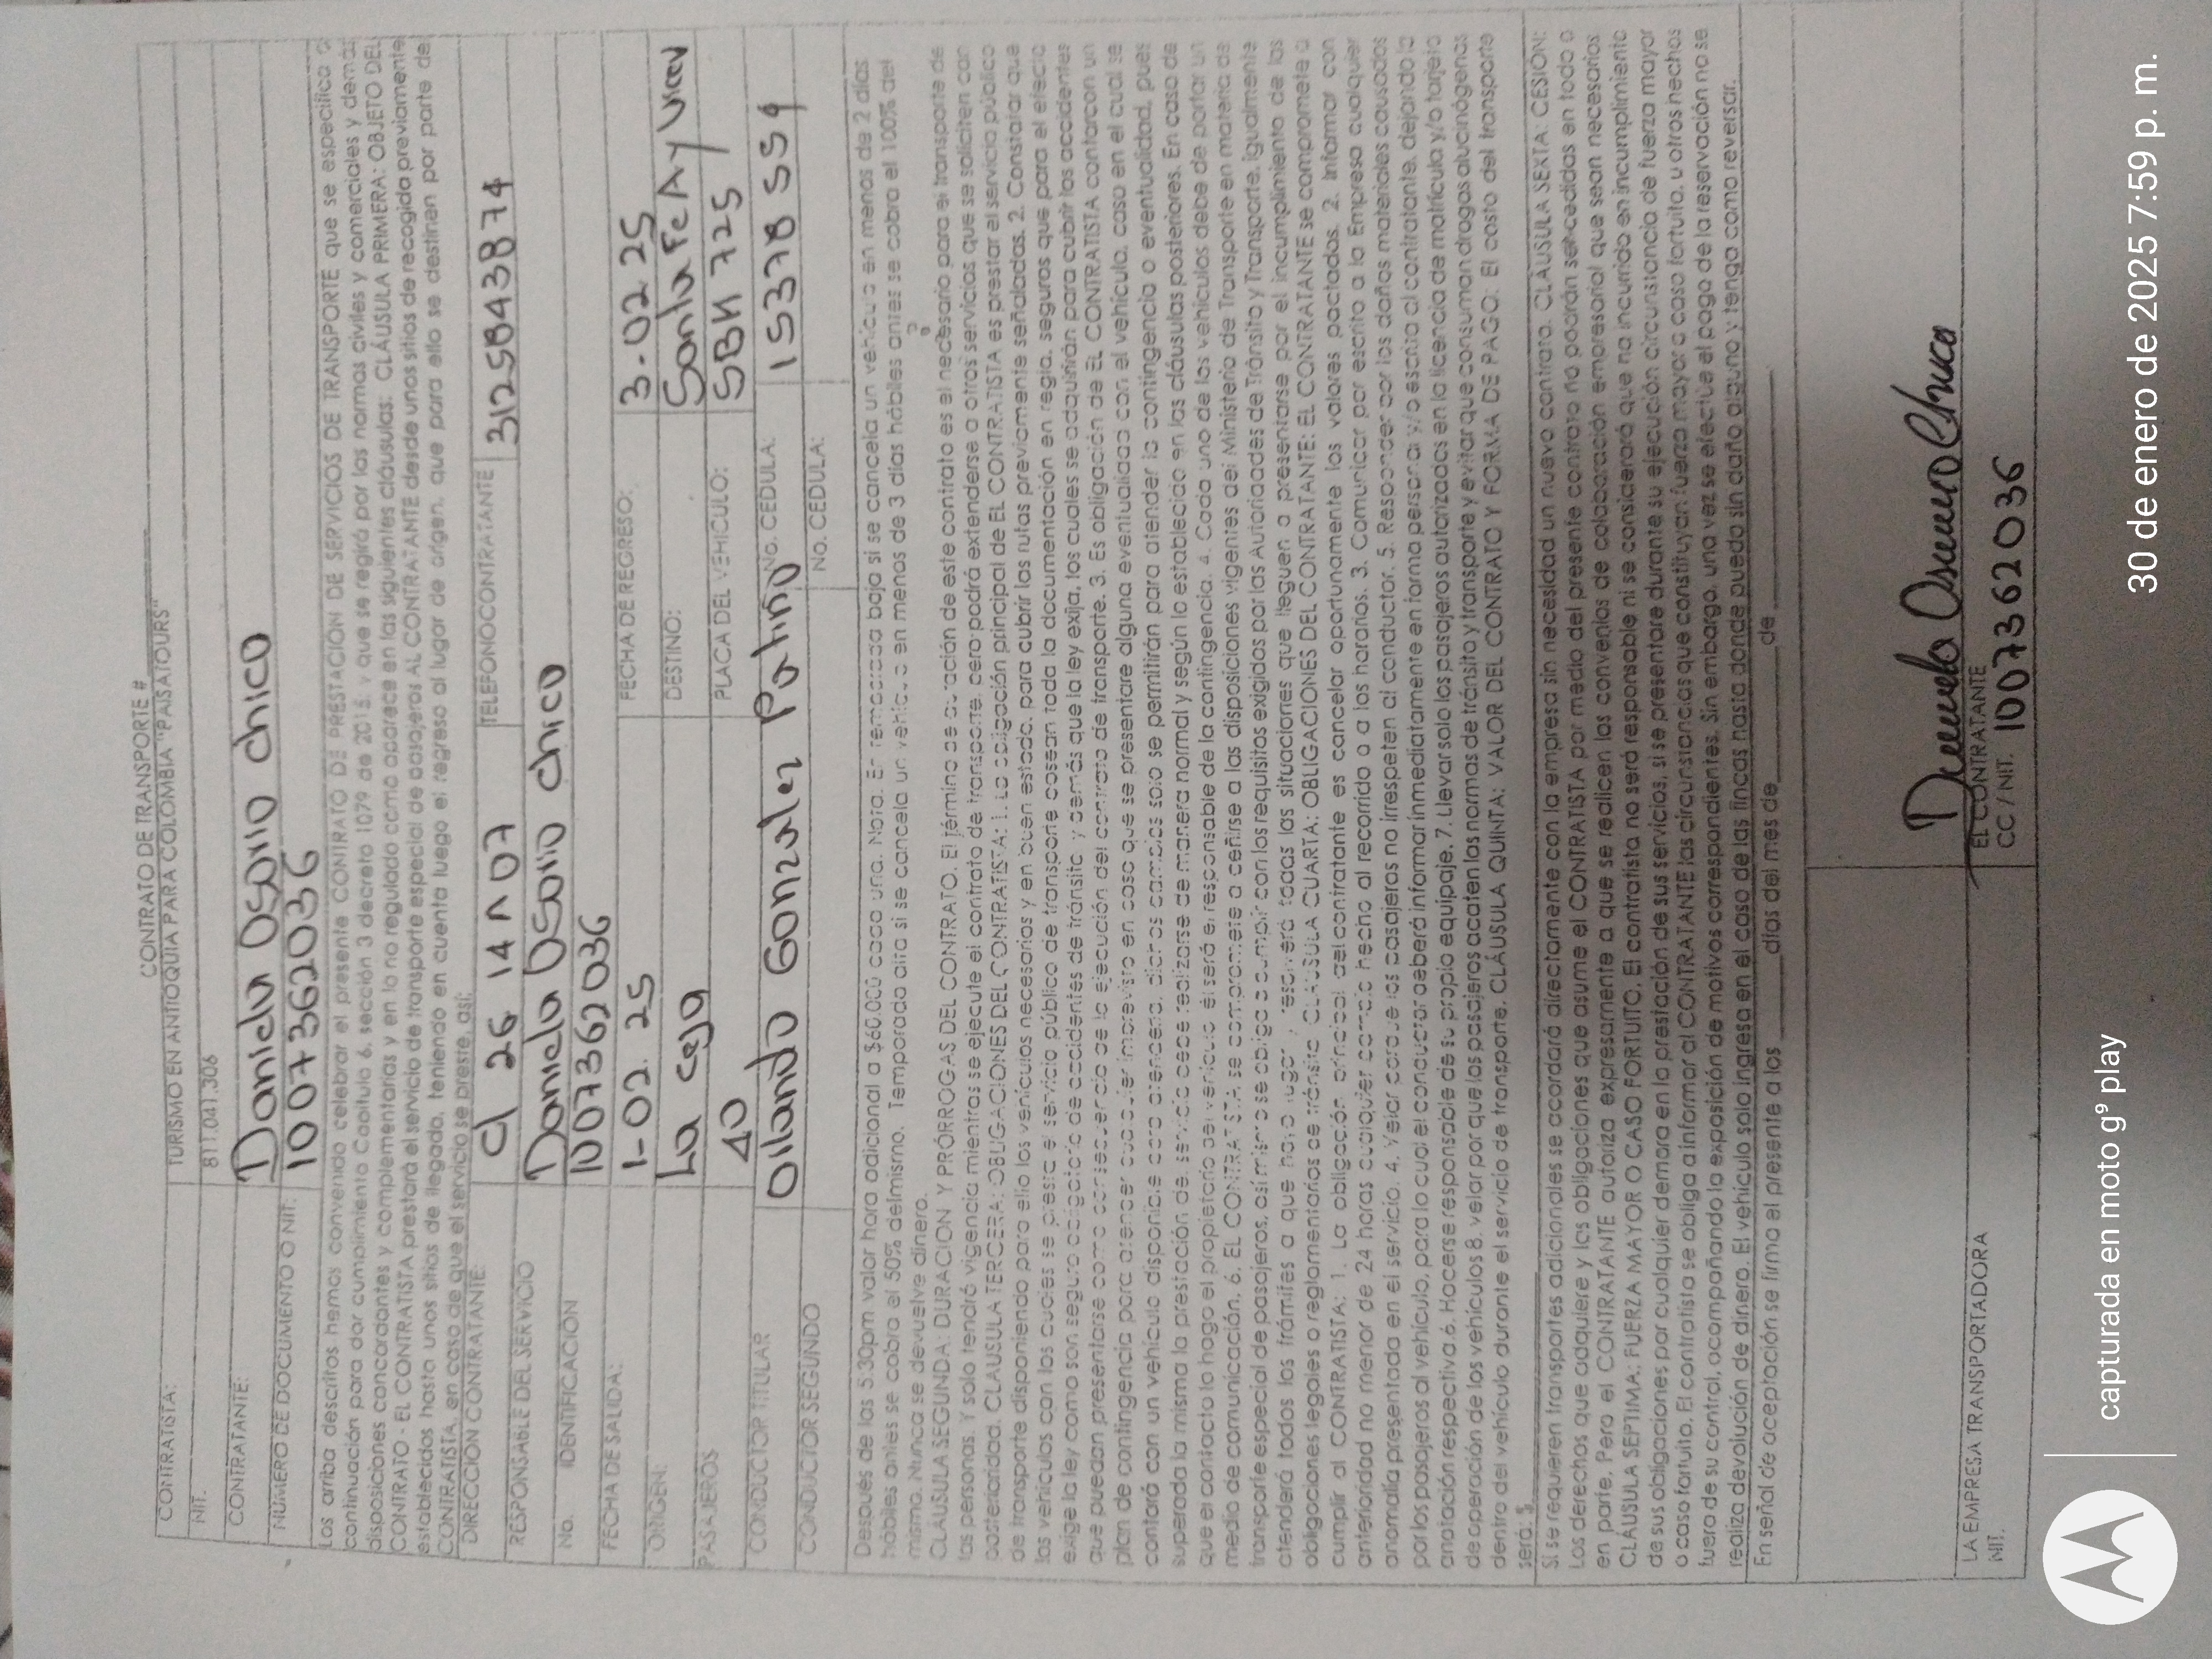 CONTRATO DE TRANSPORTE #
CONTRATISTA: TURISMO EN ANTIOQUIA PARA COLOMBIA "PAISATOURS"
NIT. 811.041.306
CONTRATANTE: Daniela Osorio chico
NÚMERO DE DOCUMENTO O NIT: 1007362036
Los arriba descritos hemos convenido celebrar el presente CONTRATO DE PRESTACIÓN DE SERVICIOS DE TRANSPORTE que se especifica a
continuación para dar cumplimiento Capítulo 6, sección 3 decreto 1079 de 2015, y que se regirá por las normas civiles y comerciales y demás
disposiciones concordantes y complementarias y en lo no regulado como aparece en las siguientes cláusulas: CLÁUSULA PRIMERA: OBJETO DEL
CONTRATO - EL CONTRATISTA prestará el servicio de transporte especial de pasajeros AL CONTRATANTE desde unos sitios de recogida previamente
establecidos hasta unos sitios de llegada, teniendo en cuenta luego el regreso al lugar de origen, que para ello se destinen por parte del
CONTRATISTA, en caso de que el servicio se preste, así:
DIRECCIÓN CONTRATANTE: Cl 26 14 A 07 TELEFONOCONTRATANTE 3125843874
RESPONSABLE DEL SERVICIO Daniela Osorio Chico
No. IDENTIFICACIÓN 1007362036
FECHA DE SALIDA: 1-02. 25 FECHA DE REGRESO: 3-02 25
ORIGEN: La ceja DESTINO: Santa Fe Ay
PASAJEROS 40 PLACA DEL VEHICULO: SBH 725
CONDUCTOR TITULAR Ollando Gonzalez Patiño No. CEDULA: 15378554
CONDUCTOR SEGUNDO No. CEDULA:
Después de las 5:30pm valor hora adicional a $60.000 cada una. Nota. En temporada baja si se cancela un vehículo en menos de 2 días
hábiles antes se cobra el 50% del mismo. Temporada alta si se cancela un vehículo en menos de 3 días hábiles antes se cobra el 100% del
mismo. Nunca se devuelve dinero.
CLÁUSULA SEGUNDA: DURACION Y PRÓRROGAS DEL CONTRATO. El término de duración de este contrato es el necesario para el transporte de
las personas. Y solo tendrá vigencia mientras se ejecute el contrato de transporte, pero podrá extenderse a otros servicios que se soliciten con
posterioridad. CLAUSULA TERCERA: OBLIGACIONES DEL CONTRATISTA: 1. La obligación principal de EL CONTRATISTA es prestar el servicio público
de transporte disponiendo para ello los vehículos necesarios y en buen estado, para cubrir las rutas previamente señaladas. 2. Constatar que
los vehículos con los cuales se presta el servicio público de transporte posean toda la documentación en regla, seguros que para el efecto
exige la ley como son seguro obligatorio de accidentes de tránsito y demás que la ley exija, los cuales se adquirirán para cubrir los accidentes
que puedan presentarse como consecuencia de la ejecución del contrato de transporte. 3. Es obligación de EL CONTRATISTA contar con un
plan de contingencia para atender cualquier imprevisto en caso que se presentare alguna eventualidad con el vehículo, caso en el cual se
contará con un vehículo disponible para atenderla, dichos cambios solo se permitirán para atender la contingencia o eventualidad, pues
superada la misma la prestación del servicio debe realizarse de manera normal y según lo establecido en las cláusulas posteriores. En caso de
que el contacto lo haga el propietario del vehículo, él será el responsable de la contingencia. 4. Cada uno de los vehículos debe de portar un
medio de comunicación. 6. EL CONTRATISTA se compromete a ceñirse a las disposiciones vigentes del Ministerio de Transporte en materia de
transporte especial de pasajeros, así mismo se obliga a cumplir con los requisitos exigidos por las Autoridades de Tránsito y Transporte. Igualmente
atenderá todos los trámites a que haya lugar y resolverá todas las situaciones que lleguen a presentarse por el incumplimiento de las
obligaciones legales o reglamentarias de tránsito CLÁUSULA CUARTA: OBLIGACIONES DEL CONTRATANTE: EL CONTRATANTE se compromete a
cumplir al CONTRATISTA: 1. La obligación principal del contratante es cancelar oportunamente los valores pactados. 2. Informar con
anterioridad no menor de 24 horas cualquier cambio hecho al recorrido o a los horarios. 3. Comunicar por escrito a la Empresa cualquier
anomalía presentada en el servicio. 4. Velar porque los pasajeros no irrespeten al conductor. 5. Responder por los daños materiales causados
por los pasajeros al vehículo, para lo cual el conductor deberá informar inmediatamente en forma personal y/o escrita al contratante, dejando la
anotación respectiva. 6. Hacerse responsable de su propio equipaje. 7. Llevar solo los pasajeros autorizados en la licencia de matrícula y/o tarjeta
de operación de los vehículos 8. velar por que los pasajeros acaten las normas de tránsito y transporte y evitar que consuman drogas alucinógenas
dentro del vehículo durante el servicio de transporte. CLÁUSULA QUINTA: VALOR DEL CONTRATO Y FORMA DE PAGO: El costo del transporte
será: $
Si se requieren transportes adicionales se acordará directamente con la empresa sin necesidad un nuevo contrato. CLÁUSULA SEXTA: CESION:
Los derechos que adquiere y las obligaciones que asume el CONTRATISTA por medio del presente contrato no podrán ser cedidas en todo o
en parte. Pero el CONTRATANTE autoriza expresamente a que se realicen los convenios de colaboración empresarial que sean necesarios
CLÁUSULA SEPTIMA.: FUERZA MAYOR O CASO FORTUITO. El contratista no será responsable ni se considerará que ha incurrido en incumplimiento
de sus obligaciones por cualquier demora en la prestación de sus servicios, si se presentare durante su ejecución circunstancia de fuerza mayor
o caso fortuito. El contratista se obliga a informar al CONTRATANTE las circunstancias que constituyan fuerza mayor o caso fortuito, u otros hechos
fuera de su control, acompañando la exposición de motivos correspondientes. Sin embargo, una vez se efectúe el pago de la reservación no se
realiza devolución de dinero. El vehículo solo ingresa en el caso de las fincas hasta donde pueda sin daño alguno y tenga como reversar.
En señal de aceptación se firma el presente a los ______ días del mes de ____________ de ____________
Daniela Osorio Chico
LA EMPRESA TRANSPORTADORA EL CONTRATANTE
NIT. CC / NIT. 1007362036
capturada en moto g⁹ play
30 de enero de 2025 7:59 p. m.